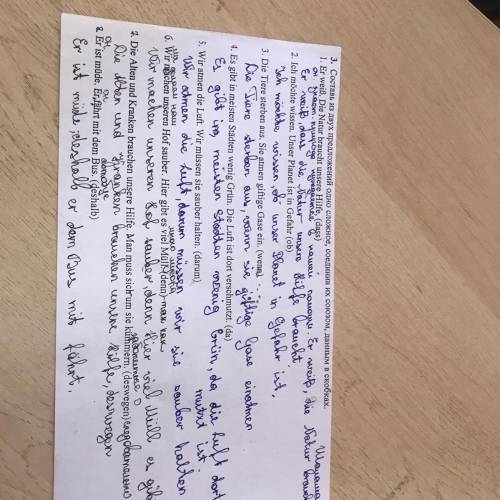 3. Составь из двух предложений одно сложное, соединив их союзом, данным в скобках.
1. Er weiß. Die Natur braucht unsere Hilfe. (dass)
Er weiß, dass die Natur unsere Hilfe braucht
2. Ich möchte wissen. Unser Planet ist in Gefahr (ob)
Ich möchte wissen, ob unser Planet in Gefahr ist.
3. Die Tiere sterben aus. Sie atmen giftige Gase ein. (wenn)
Die Tiere sterben aus, wenn sie giftige Gase einatmen
4. Es gibt in meisten Städten wenig Grün. Die Luft ist dort verschmutzt. (da)
Es gibt in meisten Städten wenig Grün, da die Luft dort
mutzt ist
5. Wir atmen die Luft. Wir müssen sie sauber halten. (darum)
Wir atmen die Luft, darum müssen wir sie sauber halten
6. Wir machen unseren Hof sauber. Hier gibt es viel Müll. (denn) так как
Wir machen unseren Hof sauber, denn hier viel Müll es gib
7. Die Alten und Kranken brauchen unsere Hilfe. Man muss sich um sie kümmern. (deswegen)
Die Alten und Kranken brauchen unsere Hilfe, deswegen
8. Er ist müde. Er fährt mit dem Bus. (deshalb)
Er ist müde, deshalb er dem Bus mit fährt,